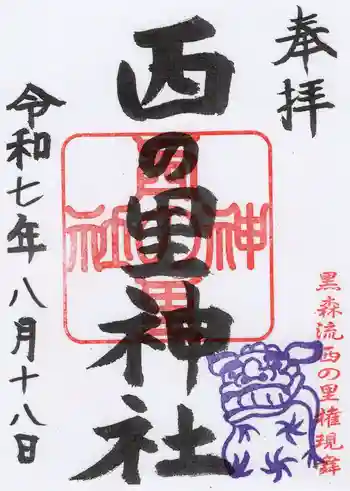 奉拝
黒森流西の里権現舞
西の里神社
令和七年八月十八日